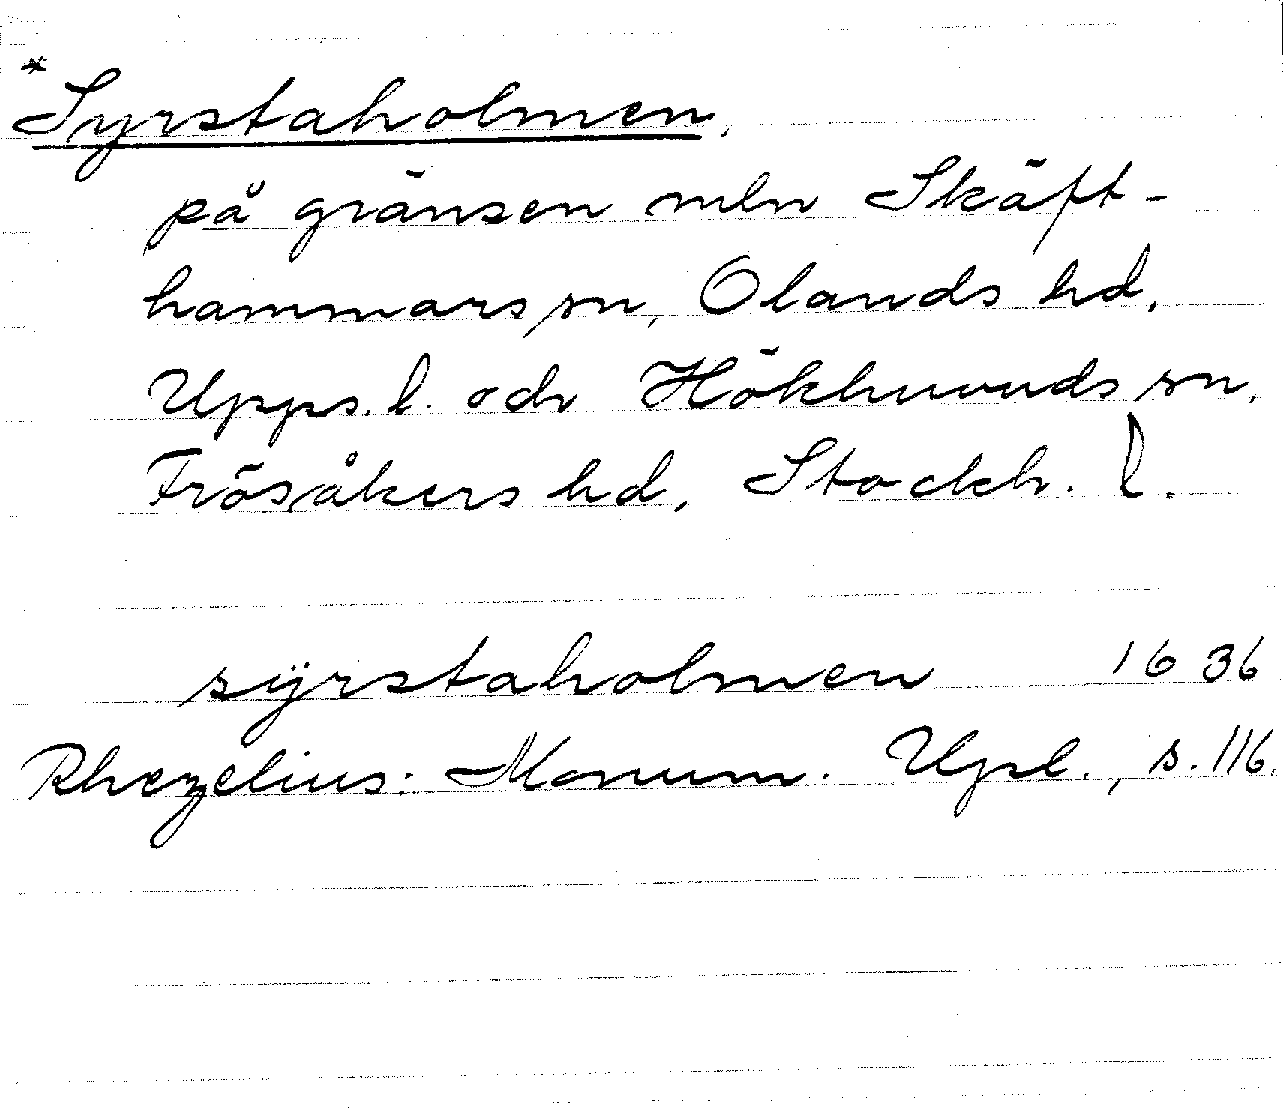 *Syrstaholmen,
på gränsen mln Skäft-
hammars sn, Olands hd,
Upps. l. och Hökhuvuds sn,
Frösåkers hd, Stockh. l.
sÿrstaholmen 1636
Rhezelius: Monum. Upl., s. 116.